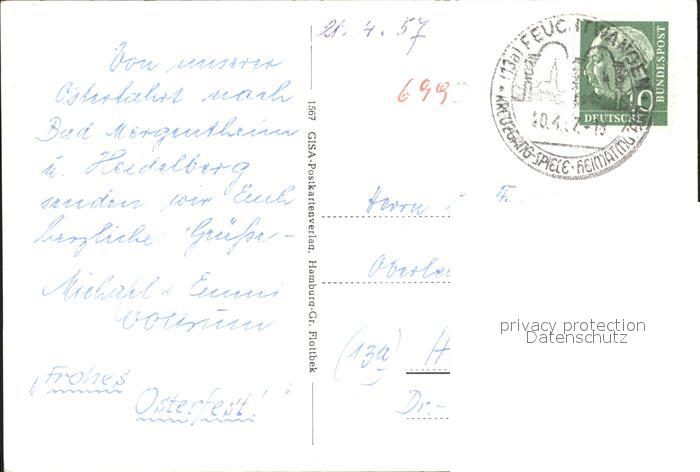 Von unserer
Osterfahrt nach
Bad Mergentheim
u. Heidelberg
senden wir Euch
herzliche Grüße –
Michael u. Emmi
„Frohes
Osterfest!“
1567 GISA-Postkartenverlag, Hamburg-Gr. Flottbek
21.4.57
699
(13a) FEUCHTWANGEN
KREUZGANG-SPIELE · HEIMATMU
10
DEUTSCHE
BUNDESPOST
Herrn u. F.
Oberle
(13a) H
Dr.-
privacy protection
Datenschutz